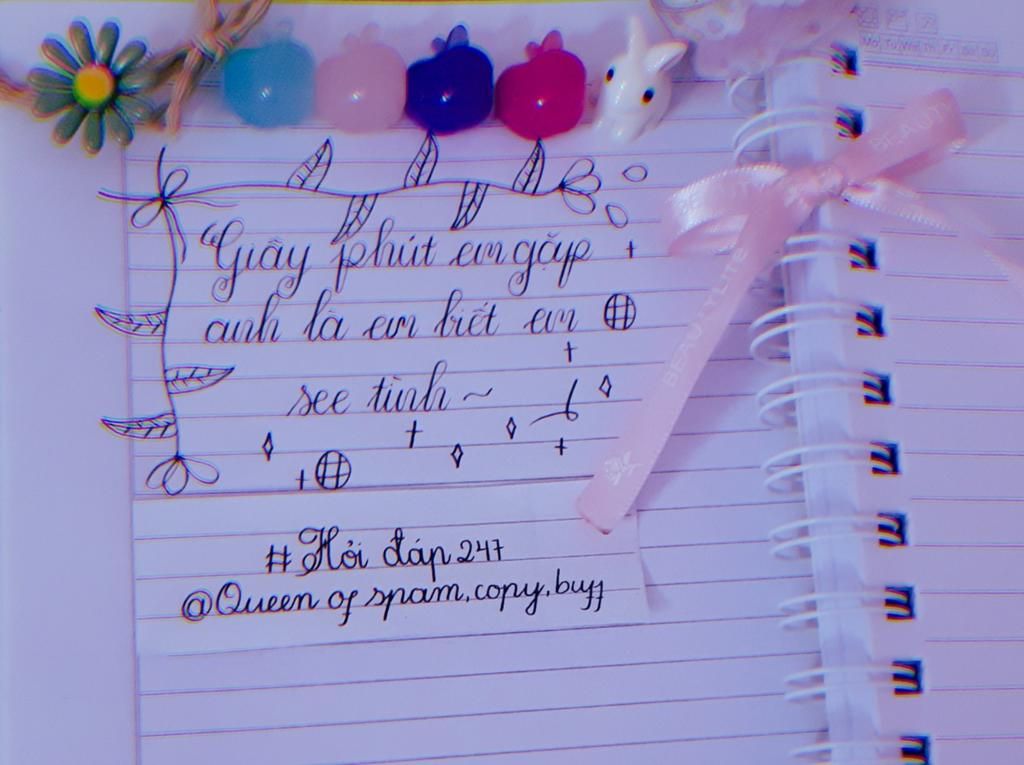 "Giây phút em gặp
anh là em biết em
see tình ~
#Hỏi đáp 247
@Queen of spam,copy,buff
BEAUTY
BEAUTYLITE